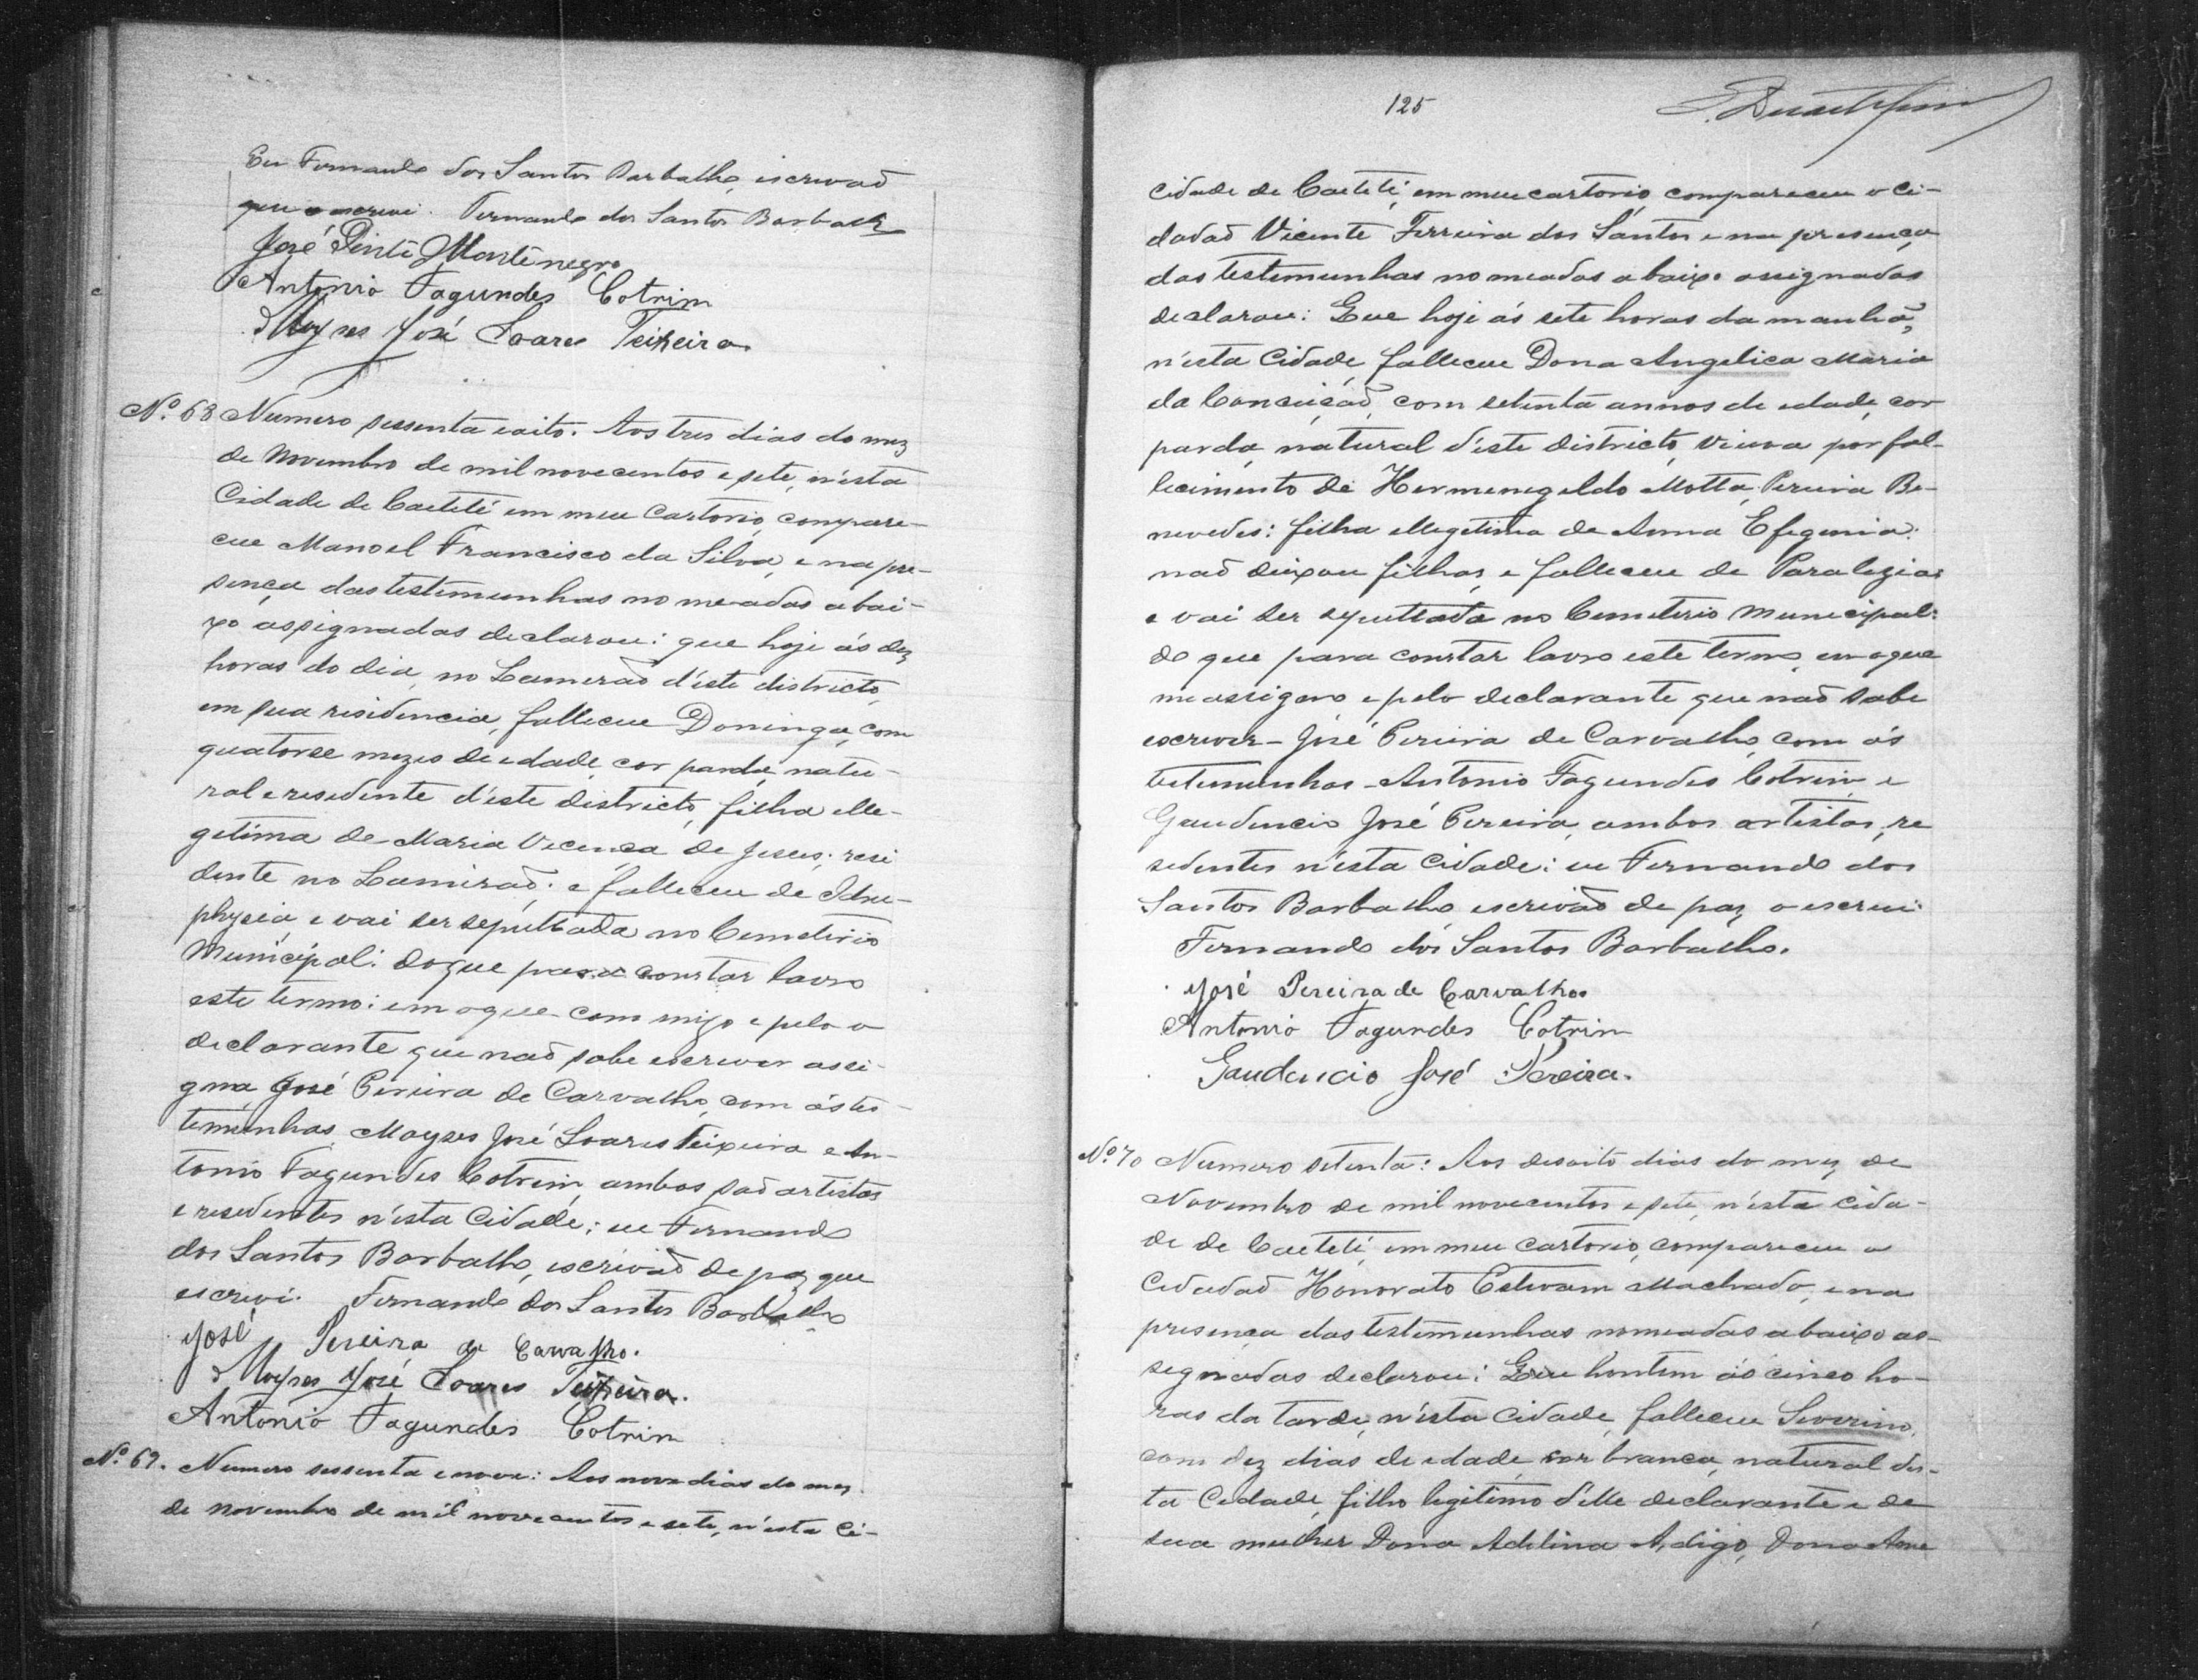 Eu Fernando dos Santos Barbalho, escrivaõ
que o escrevi. Fernando dos Santos Barbalho
José Pinto Montenegro
Antonio Fagundes Cotrim
Moyses José Soares Teixeira
Nº 68 Numero sessenta e oito. Aos tres dias do mez
de Novembro de mil novecentos e sete, n'esta
Cidade de Caetité em meu Cartorio, compare-
ceu Manoel Francisco da Silva, e na pre-
sença das testemunhas nomeadas abai-
xo assignadas declarou: que hoje ás dez
horas do dia, no Lameraõ d'este districto,
em sua residencia, falleceu Doninga, com
quatorse mezes de edade, cor parda, natu-
ral e resedente d'este districto, filha elle-
getima de Maria Vicença de Jesus; resi
dente no Lamiraõ; e falleceu de Idru-
physia, e vai ser sepultada no Cemeterio
Municipal: do que para constar lavro
este termo: em o que commigo e pelo o
declarante que naõ sabe escrever assi-
gna José Pereira de Carvalho, com ás tes-
temunhas, Moyses José Soares Teixeira e An-
tonio Fagundes Cotrim, ambos saõ artistas
e resedentes n'esta Cidade; eu Fernando
dos Santos Barbalho, escrivaõ de paz que
escrevi. Fernando dos Santos Barbalho
José Pereira de Carvalho.
Moyses José Soares Teixeira.
Antonio Fagundes Cotrim
Nº 69. Numero sessenta e nove: Aos nove dias do mez
de novembro de mil novecentos e sete, n'esta Ci-
125
cidade de Caetité, em meu cartorio, compareceu o ci-
dadaõ Vicente Ferreira dos Santos e na presença
das testemunhas nomeadas abaixo assignadas
declarou: Que hoje ás sete horas da manhã,
n'esta Cidade, falleceu Dona Angelica Maria
da Conceiçaõ, com setenta annos de edade, cor
parda, natural d'este districto, viuva por fal-
lecimento de Hermenegeldo Motta Pereira Be-
nevedes: filha ellegetima de Anna Efegenia:
naõ deixou filhos, e falleceu de Paralezias
e vai ser sepultada no Cemeterio Municipal:
do que para constar lavro este termo, em o que
me assigno e pelo declarante que naõ sabe
escrever - José Pereira de Carvalho, com ás
testemunhas - Antonio Fagundes Cotrim, e
Gaudencio José Pereira, ambos artistas, re
sedentes n'esta Cidade: eu Fernando dos
Santos Barbalho escrivaõ de paz o escrevi.
Fernando dos Santos Barbalho.
José Pereira de Carvalho
Antonio Fagundes Cotrim
Gaudencio José Pereira.
Nº 70 Numero setenta: Aos desoito dias do mez de
Novembro de mil novecentos e sete, n'esta Cida-
de de Caeteté, em meu Cartorio, compareceu o
Cedadaõ Honorato Estevam Machado, e na
presença das testemunhas nomeadas abaixo as-
segnadas declarou: Que hontem ás cinco ho-
ras da tarde, n'esta Cidade, falleceu Severino,
com dez dias de edade, cor branca, natural des-
ta Cedade, filho legitimo d'elle declarante e de
sua mulher Dona Adelina A, digo, Dona Ame